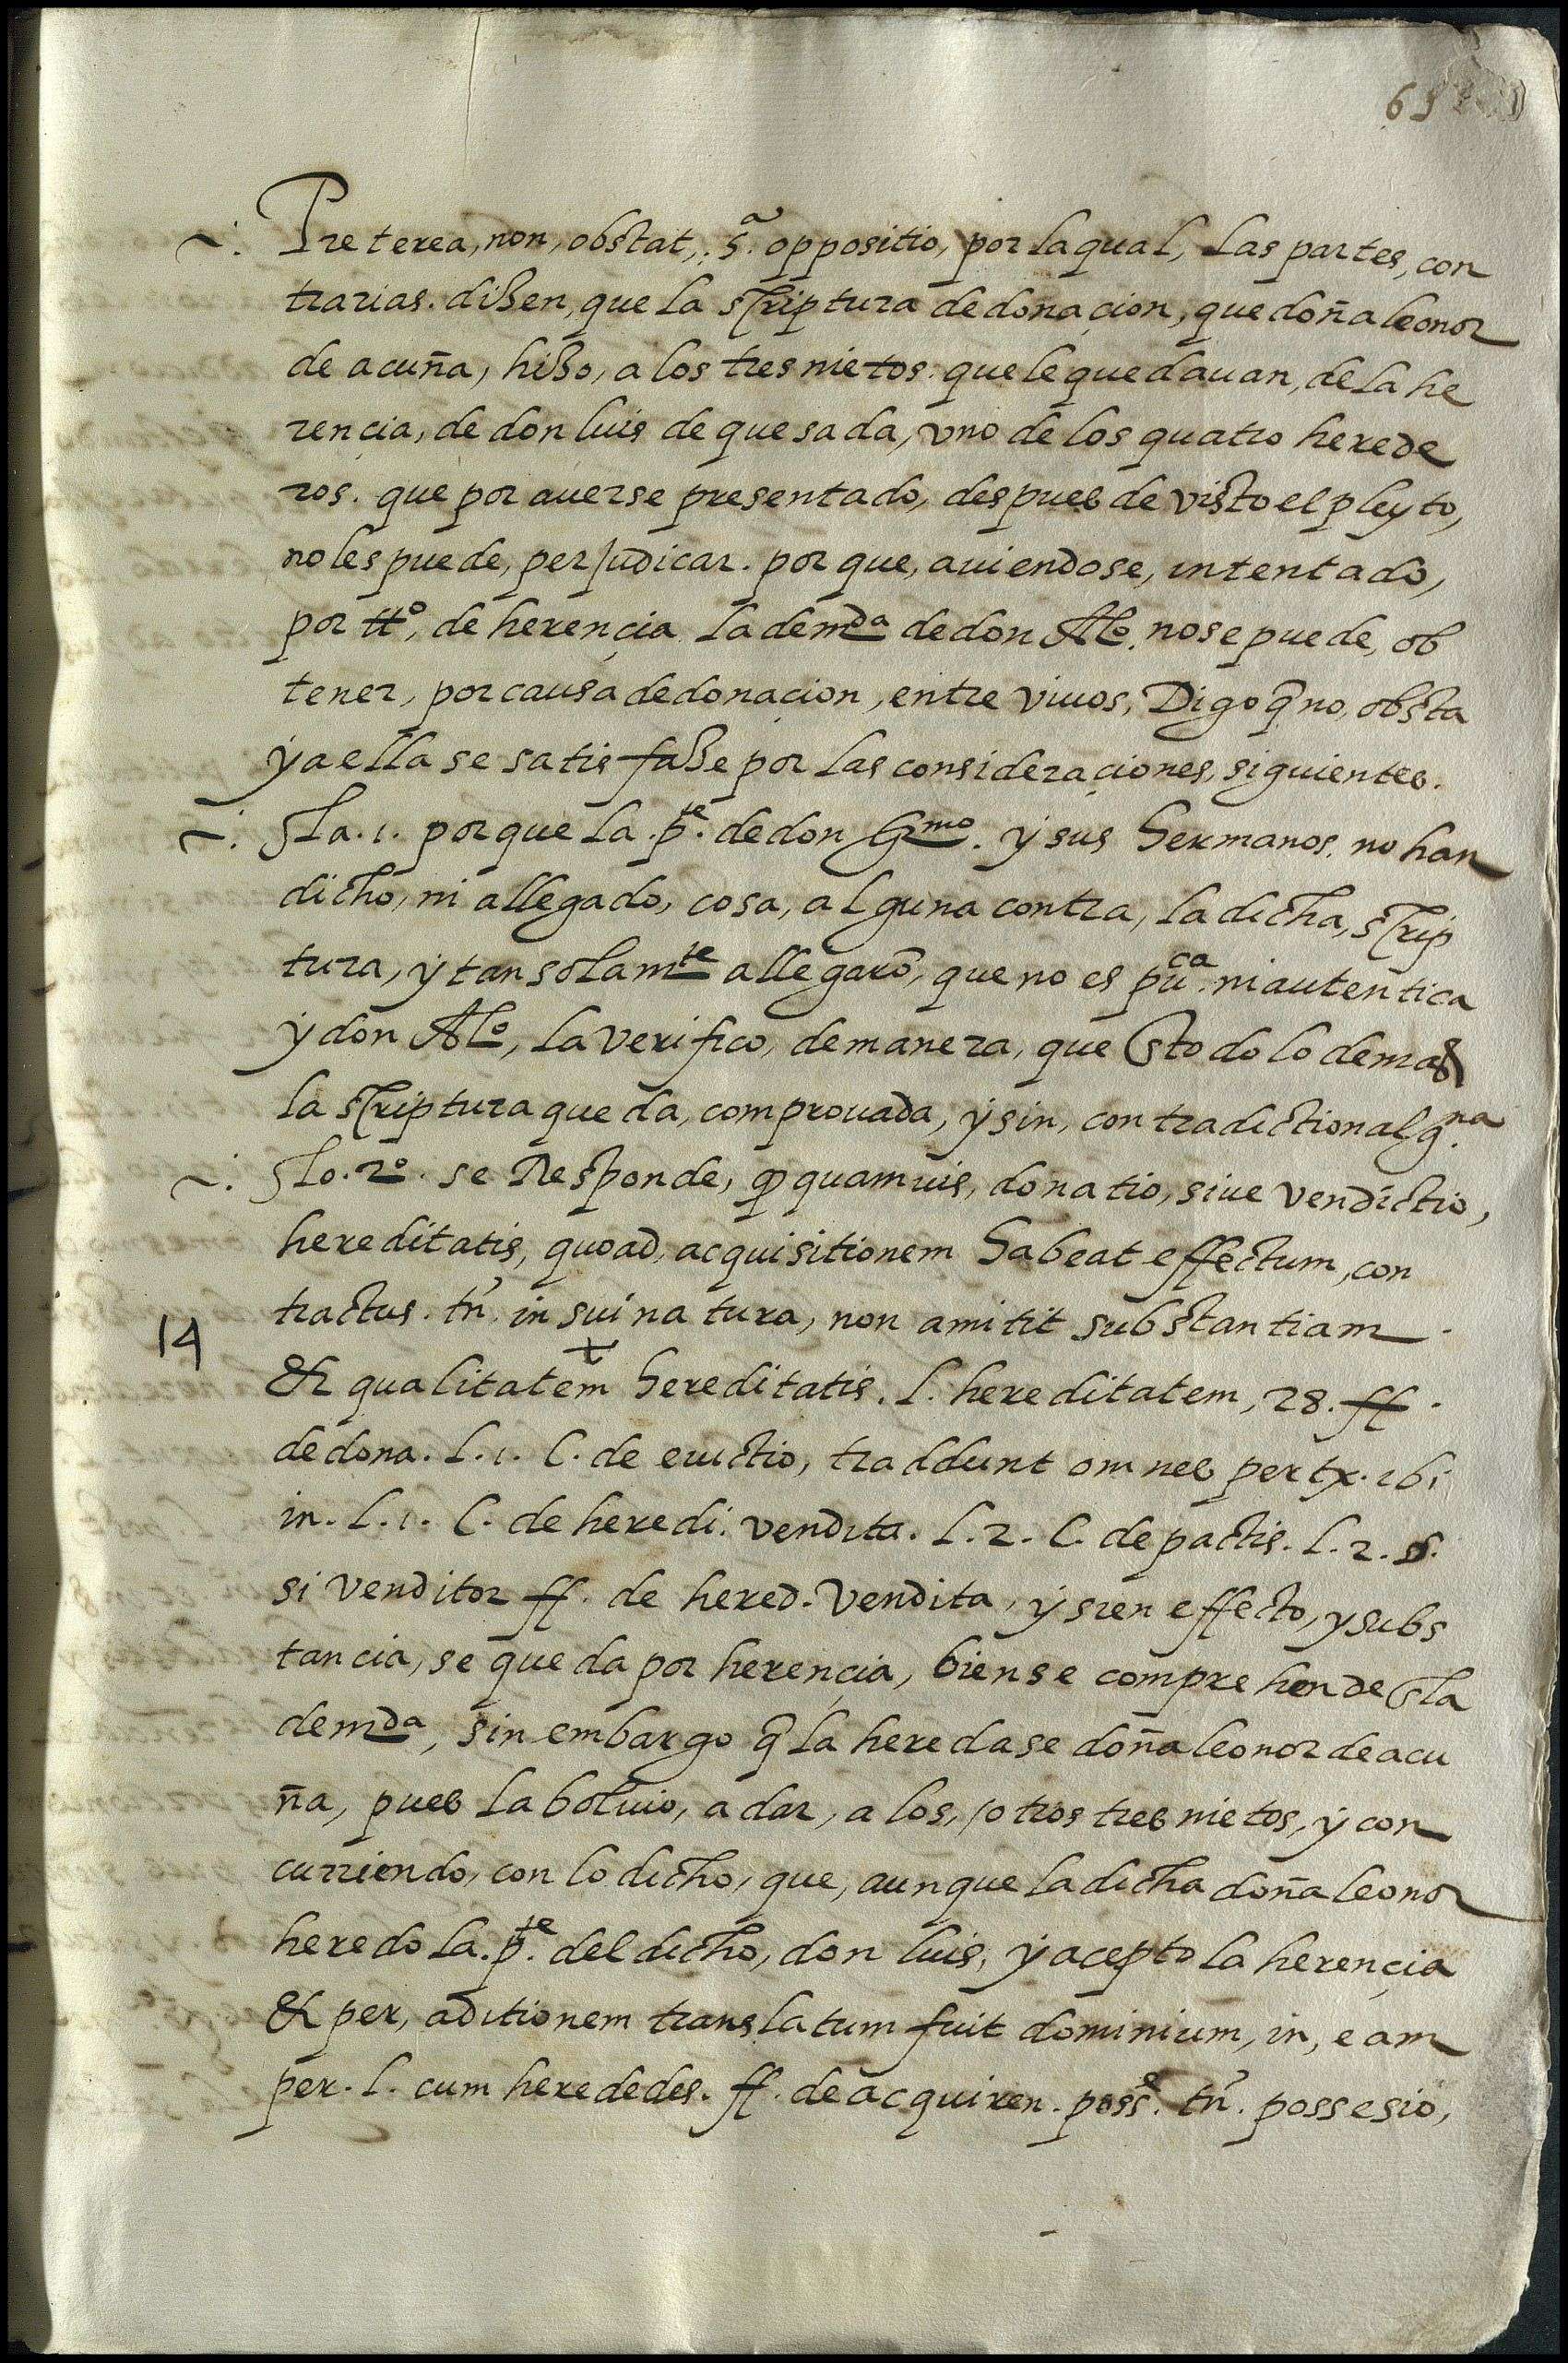 ~. Preterea, non, obstat, 5.ª oppositio, por laqual, las partes, con
trarias. dizen, que la scriptura de donaçion, que doña leonor
de acuña, hizo, a los tres nietos. que le quedauan, de la he
rençia, de don luis de quesada, vno de los quatro herede
ros. que por auerse presentado, despues de visto el pleyto,
no les puede, perjudicar. por que, auiendose, intentado,
por tt.º, de herençia la demda de don Alo. no se puede, ob
tener, por causa de donaçion, entre viuos, Digo q̃ no, obsta
y a ella se satisfaze por las consideraçiones, siguientes.
~. La .1. porque la .p.te de don Gmo. y sus hermanos. no han
dicho, ni allegado, cosa, alguna contra, la dicha, scrip
tura, y tan solamte allegarõ, que no es pu.ca ni autentica
y don Alo, la verifico, de manera, que sto do lo demas
la scriptura queda, comprouada, y sin, contradiction alg.na
~. Lo. 2º. se Responde, q̃ quamuis, donatio, siue vendictio,
hereditatis, quoad, acquisitionem habeat effectum, con
tractus. tñ. in sui natura, non amitit substantiam
14
& qualitatem hereditatis. l. hereditatem, 28. ff.
de dona. l. 1. C. de euictio, traddunt omnes per tx. ibi
in. l. 1. C. de heredi. vendita. l. 2. C. de pactis. l. 2. §.
si venditor ff. de hered. vendita, y si en effecto, y subs
tancia, se queda por herençia, bien se comprehende sta
demda, sin embargo q̃ la heredase doña leonor de acu
ña, pues la boluio, a dar, a los, otros tres nietos, y con
curriendo, con lo dicho, que, aunque la dicha doña leonor
heredo la .p.te del dicho, don luis, y acepto la herençia
& per, aditionem translatum fuit dominium, in, eam
per. l. cum herededes. ff. de acquiren. poss.e tñ. possesio,